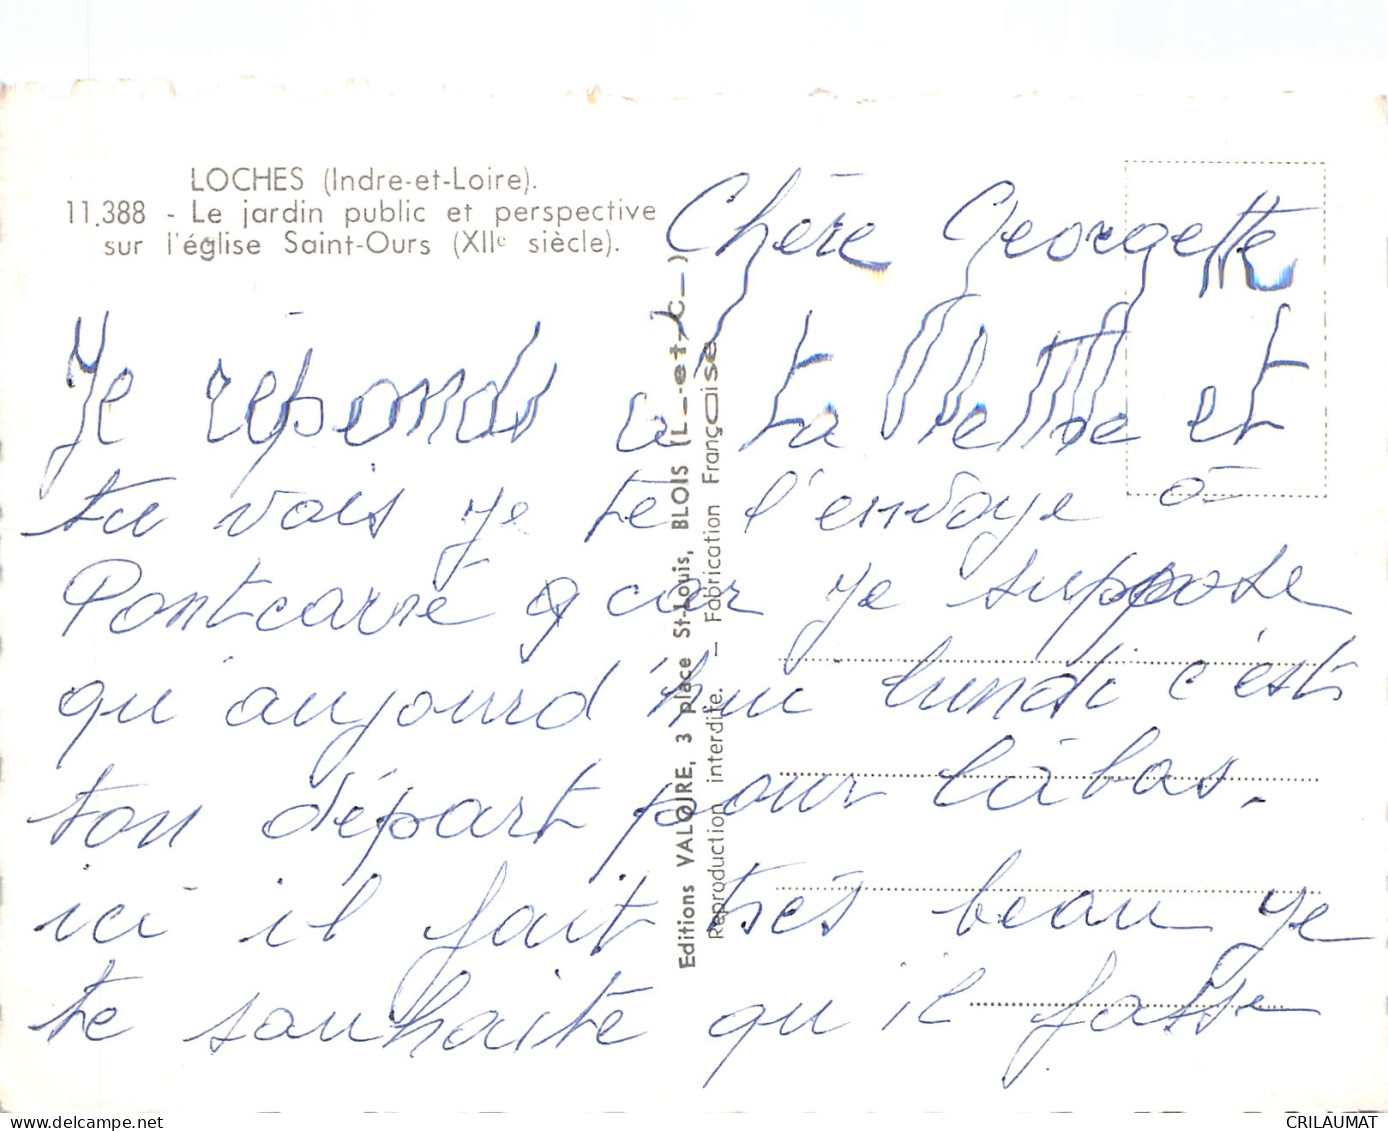 LOCHES (Indre-et-Loire).
11.388 - Le jardin public et perspective
sur l'église Saint-Ours (XIIe siècle).
Chère Georgette
Je réponds à ta lettre et
tu vois je te l'envoye à
Pontcarré car je suppose
qu'aujourd'hui lundi c'est
ton départ pour làbas.
ici il fait très beau je
te souhaite qu'il fasse
Editions VALOIRE, 3 place St-Louis, BLOIS (L.-et-C.)
Reproduction interdite. — Fabrication Française
CRILAUMAT